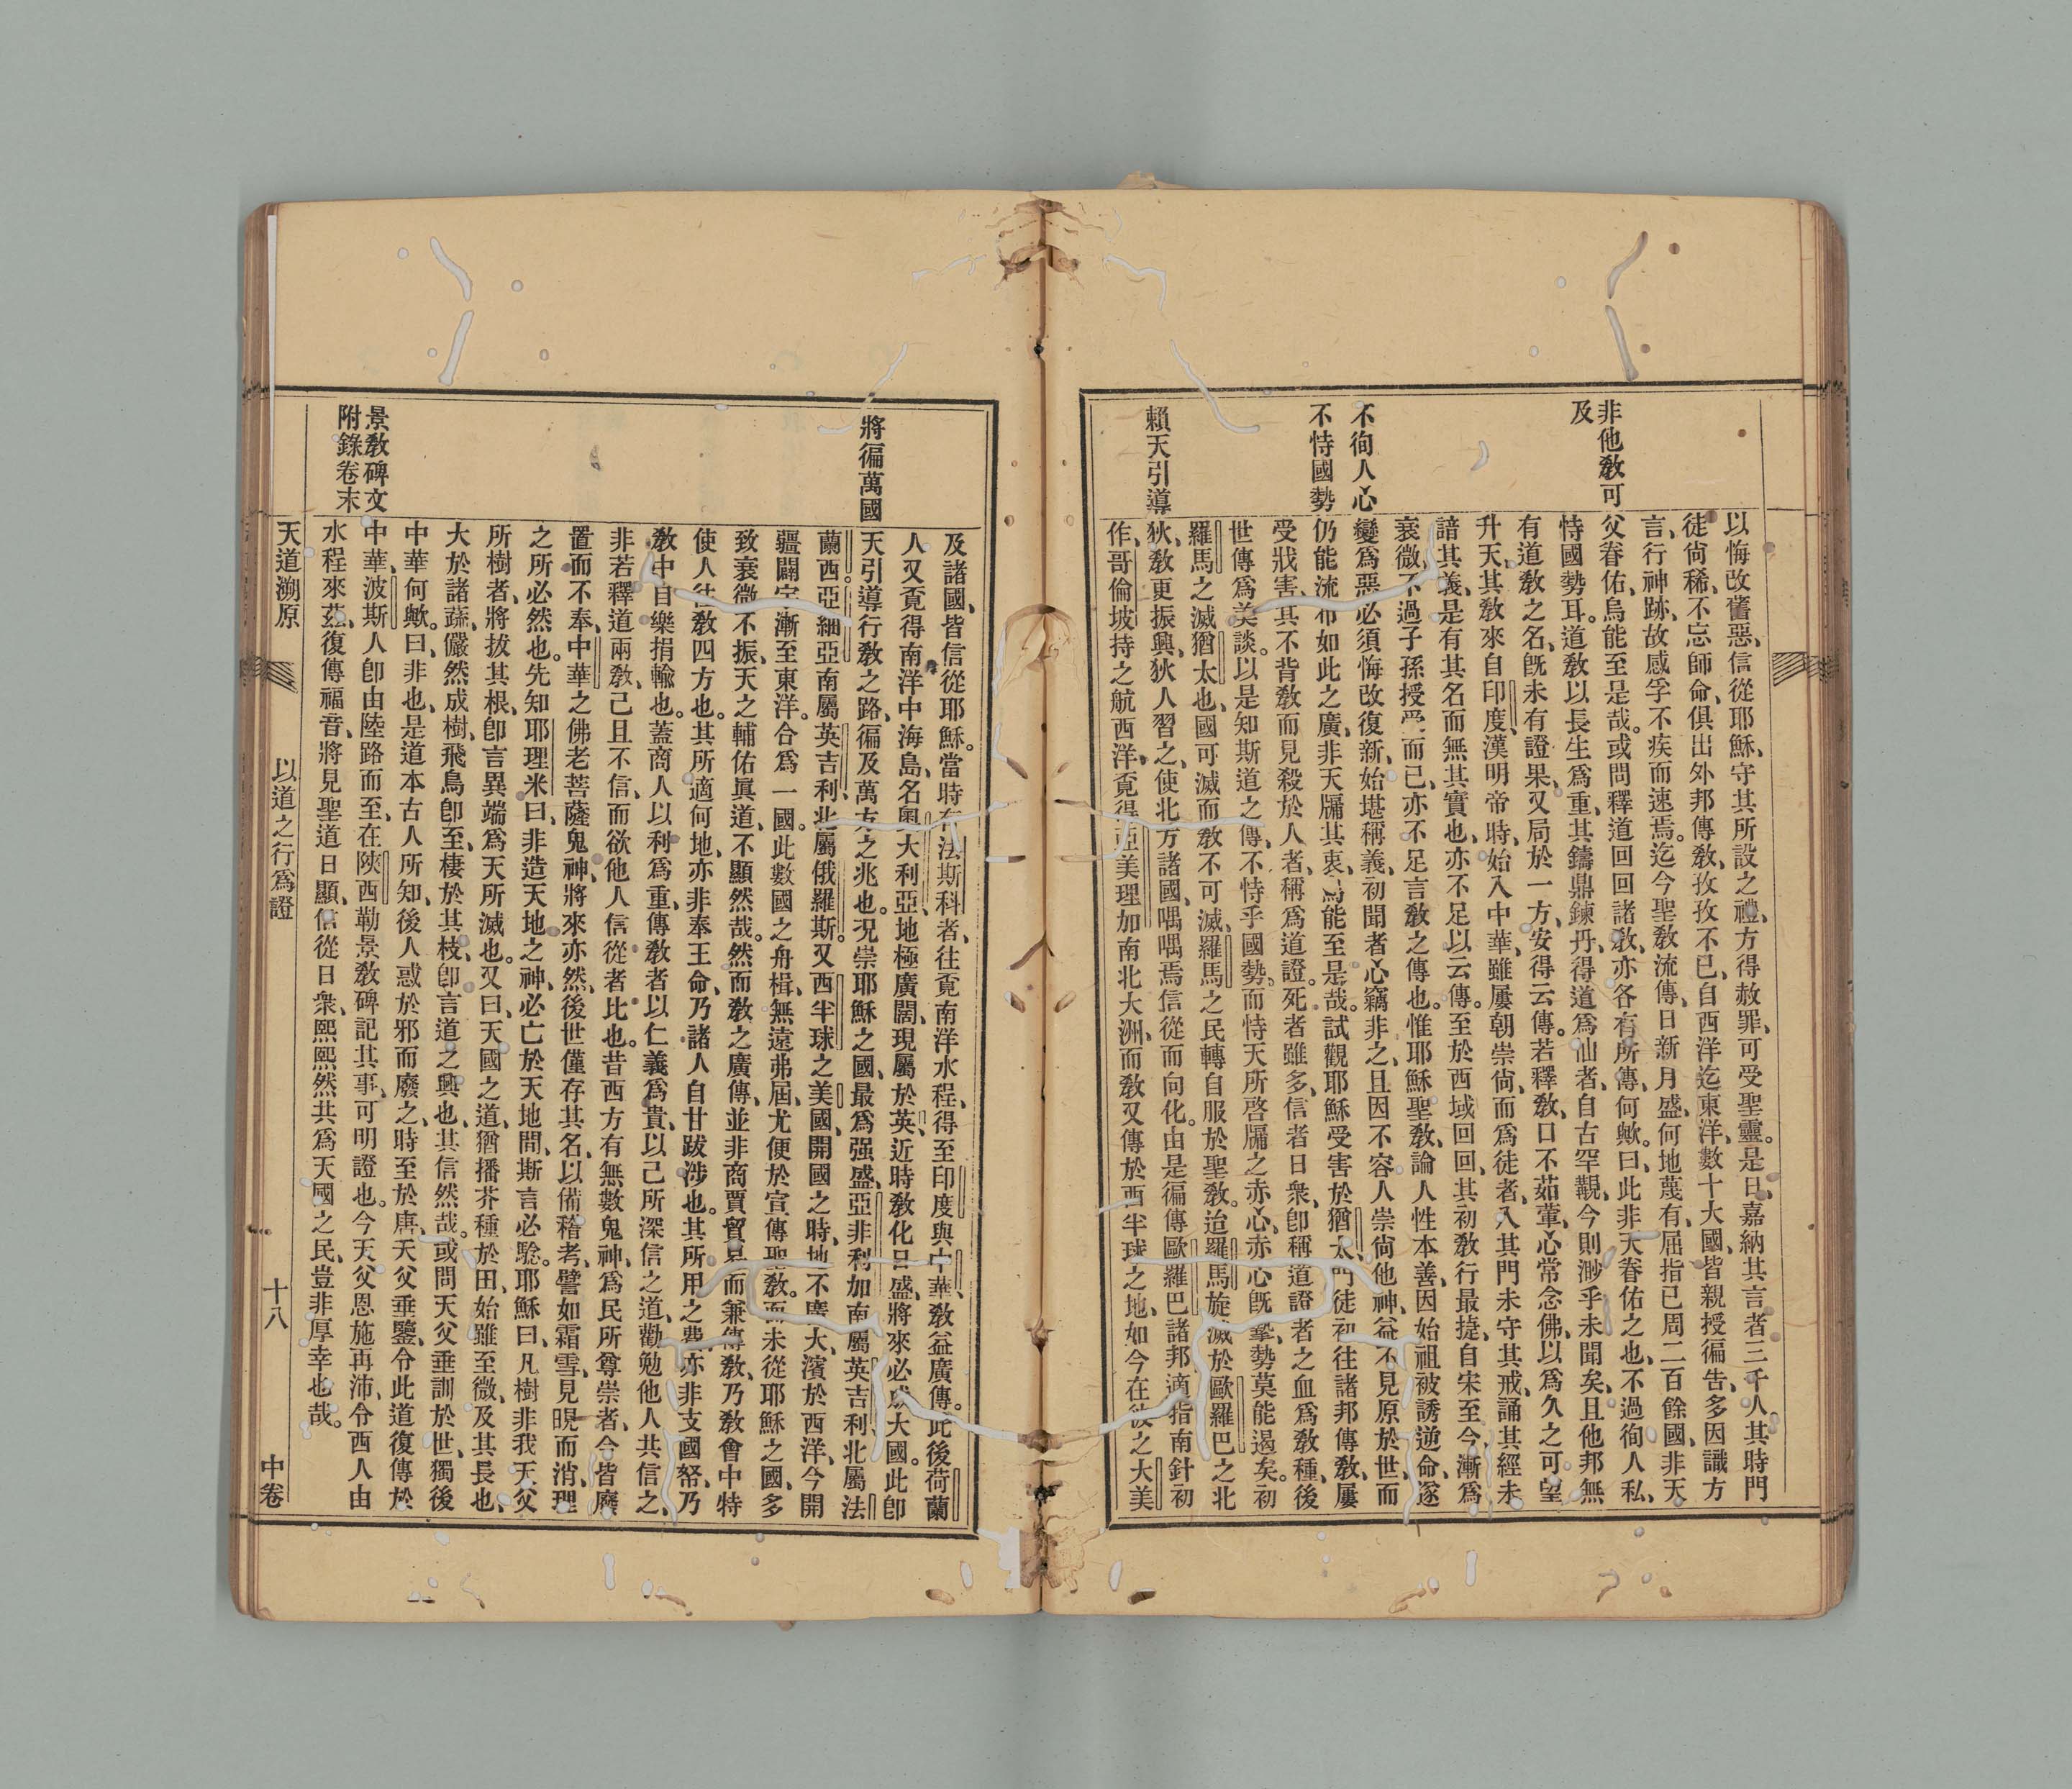 非他敎可
及
不徇人心
不恃國勢
賴天引導
以悔改舊惡、信從耶穌、守其所設之禮、方得赦罪、可受聖靈。是日、嘉納其言者三千人、其時門
徒尙稀、不忘師命、俱出外邦傳敎、孜孜不已、自西洋迄東洋、數十大國、皆親授徧告、多因識方
言、行神跡、故感孚不疾而速焉。迄今聖敎流傳、日新月盛、何地蔑有、屈指已周二百餘國、非天
父眷佑、烏能至是哉。或問釋道回回諸敎、亦各有所傳、何歟。曰、此非天眷佑之也、不過徇人私、
恃國勢耳。道敎以長生爲重、其鑄鼎鍊丹、得道爲仙者、自古罕覯、今則渺乎未聞矣、且他邦無
有道敎之名、旣未有證果、又局於一方、安得云傳。若釋敎、口不茹葷、心常念佛、以爲久之可望
升天、其敎來自印度、漢明帝時、始入中華、雖屢朝崇尙、而爲徒者、入其門未守其戒、誦其經未
諳其義、是有其名而無其實也、亦不足以云傳。至於西域回回、其初敎行最捷、自宋至今、漸爲
衰微、不過子孫授受而已、亦不足言敎之傳也。惟耶穌聖敎、論人性本善、因始祖被誘逆命、遂
變爲惡、必須悔改復新、始堪稱義、初聞者心竊非之、且因不容人崇尙他神、益不見原於世、而
仍能流布如此之廣、非天牖其衷、烏能至是哉。試觀耶穌受害於猶太、門徒初往諸邦傳敎、屢
受戕害、其不背敎而見殺於人者、稱爲道證。死者雖多、信者日衆、卽稱道證者之血爲敎種、後
世傳爲美談。以是知斯道之傳、不恃乎國勢。而恃天所啓牖之赤心、赤心旣摯、勢莫能遏矣。初
羅馬之滅猶太也、國可滅而敎不可滅、羅馬之民轉自服於聖敎。迨羅馬旋滅於歐羅巴之北
狄、敎更振興、狄人習之、使北方諸國、喁喁焉信從而向化。由是徧傳歐羅巴諸邦、適指南針初
作、哥倫坡持之航西洋、覓得亞美理加南北大洲、而敎又傳於西半球之地、如今在彼之大美
將徧萬國
景敎碑文
附錄卷末
及諸國、皆信從耶穌。當時有法斯科者、往覓南洋水程、得至印度與中華、敎益廣傳。此後荷蘭
人又覓得南洋中海島、名奧大利亞、地極廣闊、現屬於英、近時敎化日盛、將來必成大國。此卽
天引導行敎之路、徧及萬方之兆也。況崇耶穌之國、最爲强盛、亞非利加南屬英吉利、北屬法
蘭西。亞細亞南屬英吉利、北屬俄羅斯。又西半球之美國、開國之時、地不廣大、濱於西洋、今開
疆闢宇、漸至東洋。合爲一國。此數國之舟楫、無遠弗屆、尤便於宣傳聖敎。而未從耶穌之國、多
致衰微不振、天之輔佑眞道、不顯然哉。然而敎之廣傳、並非商賈貿易而兼傳敎、乃敎會中特
使人往敎四方也。其所適何地、亦非奉王命、乃諸人自甘跋涉也。其所用之費、亦非支國帑、乃
敎中自樂捐輸也。蓋商人以利爲重、傳敎者以仁義爲貴、以己所深信之道、勸勉他人共信之、
非若釋道兩敎、己且不信、而欲他人信從者比也。昔西方有無數鬼神、爲民所尊崇者、今皆廢
置而不奉、中華之佛老菩薩鬼神、將來亦然、後世僅存其名、以備稽考、譬如霜雪、見晛而消、理
之所必然也。先知耶理米曰、非造天地之神、必亡於天地間、斯言必騐。耶穌曰、凡樹非我天父
所樹者、將拔其根、卽言異端爲天所滅也。又曰、天國之道、猶播芥種於田、始雖至微、及其長也、
大於諸蔬、儼然成樹、飛鳥卽至、棲於其枝、卽言道之興也、其信然哉。或問天父垂訓於世、獨後
中華何歟。曰、非也、是道本古人所知、後人惑於邪而廢之、時至於唐、天父垂鑒、令此道復傳於
中華、波斯人卽由陸路而至、在陝西勒景敎碑記其事、可明證也。今天父恩施再沛、令西人由
水程來茲、復傳福音、將見聖道日顯、信從日衆、熙熙然共爲天國之民、豈非厚幸也哉。
天道溯原 以道之行爲證 十八 中卷